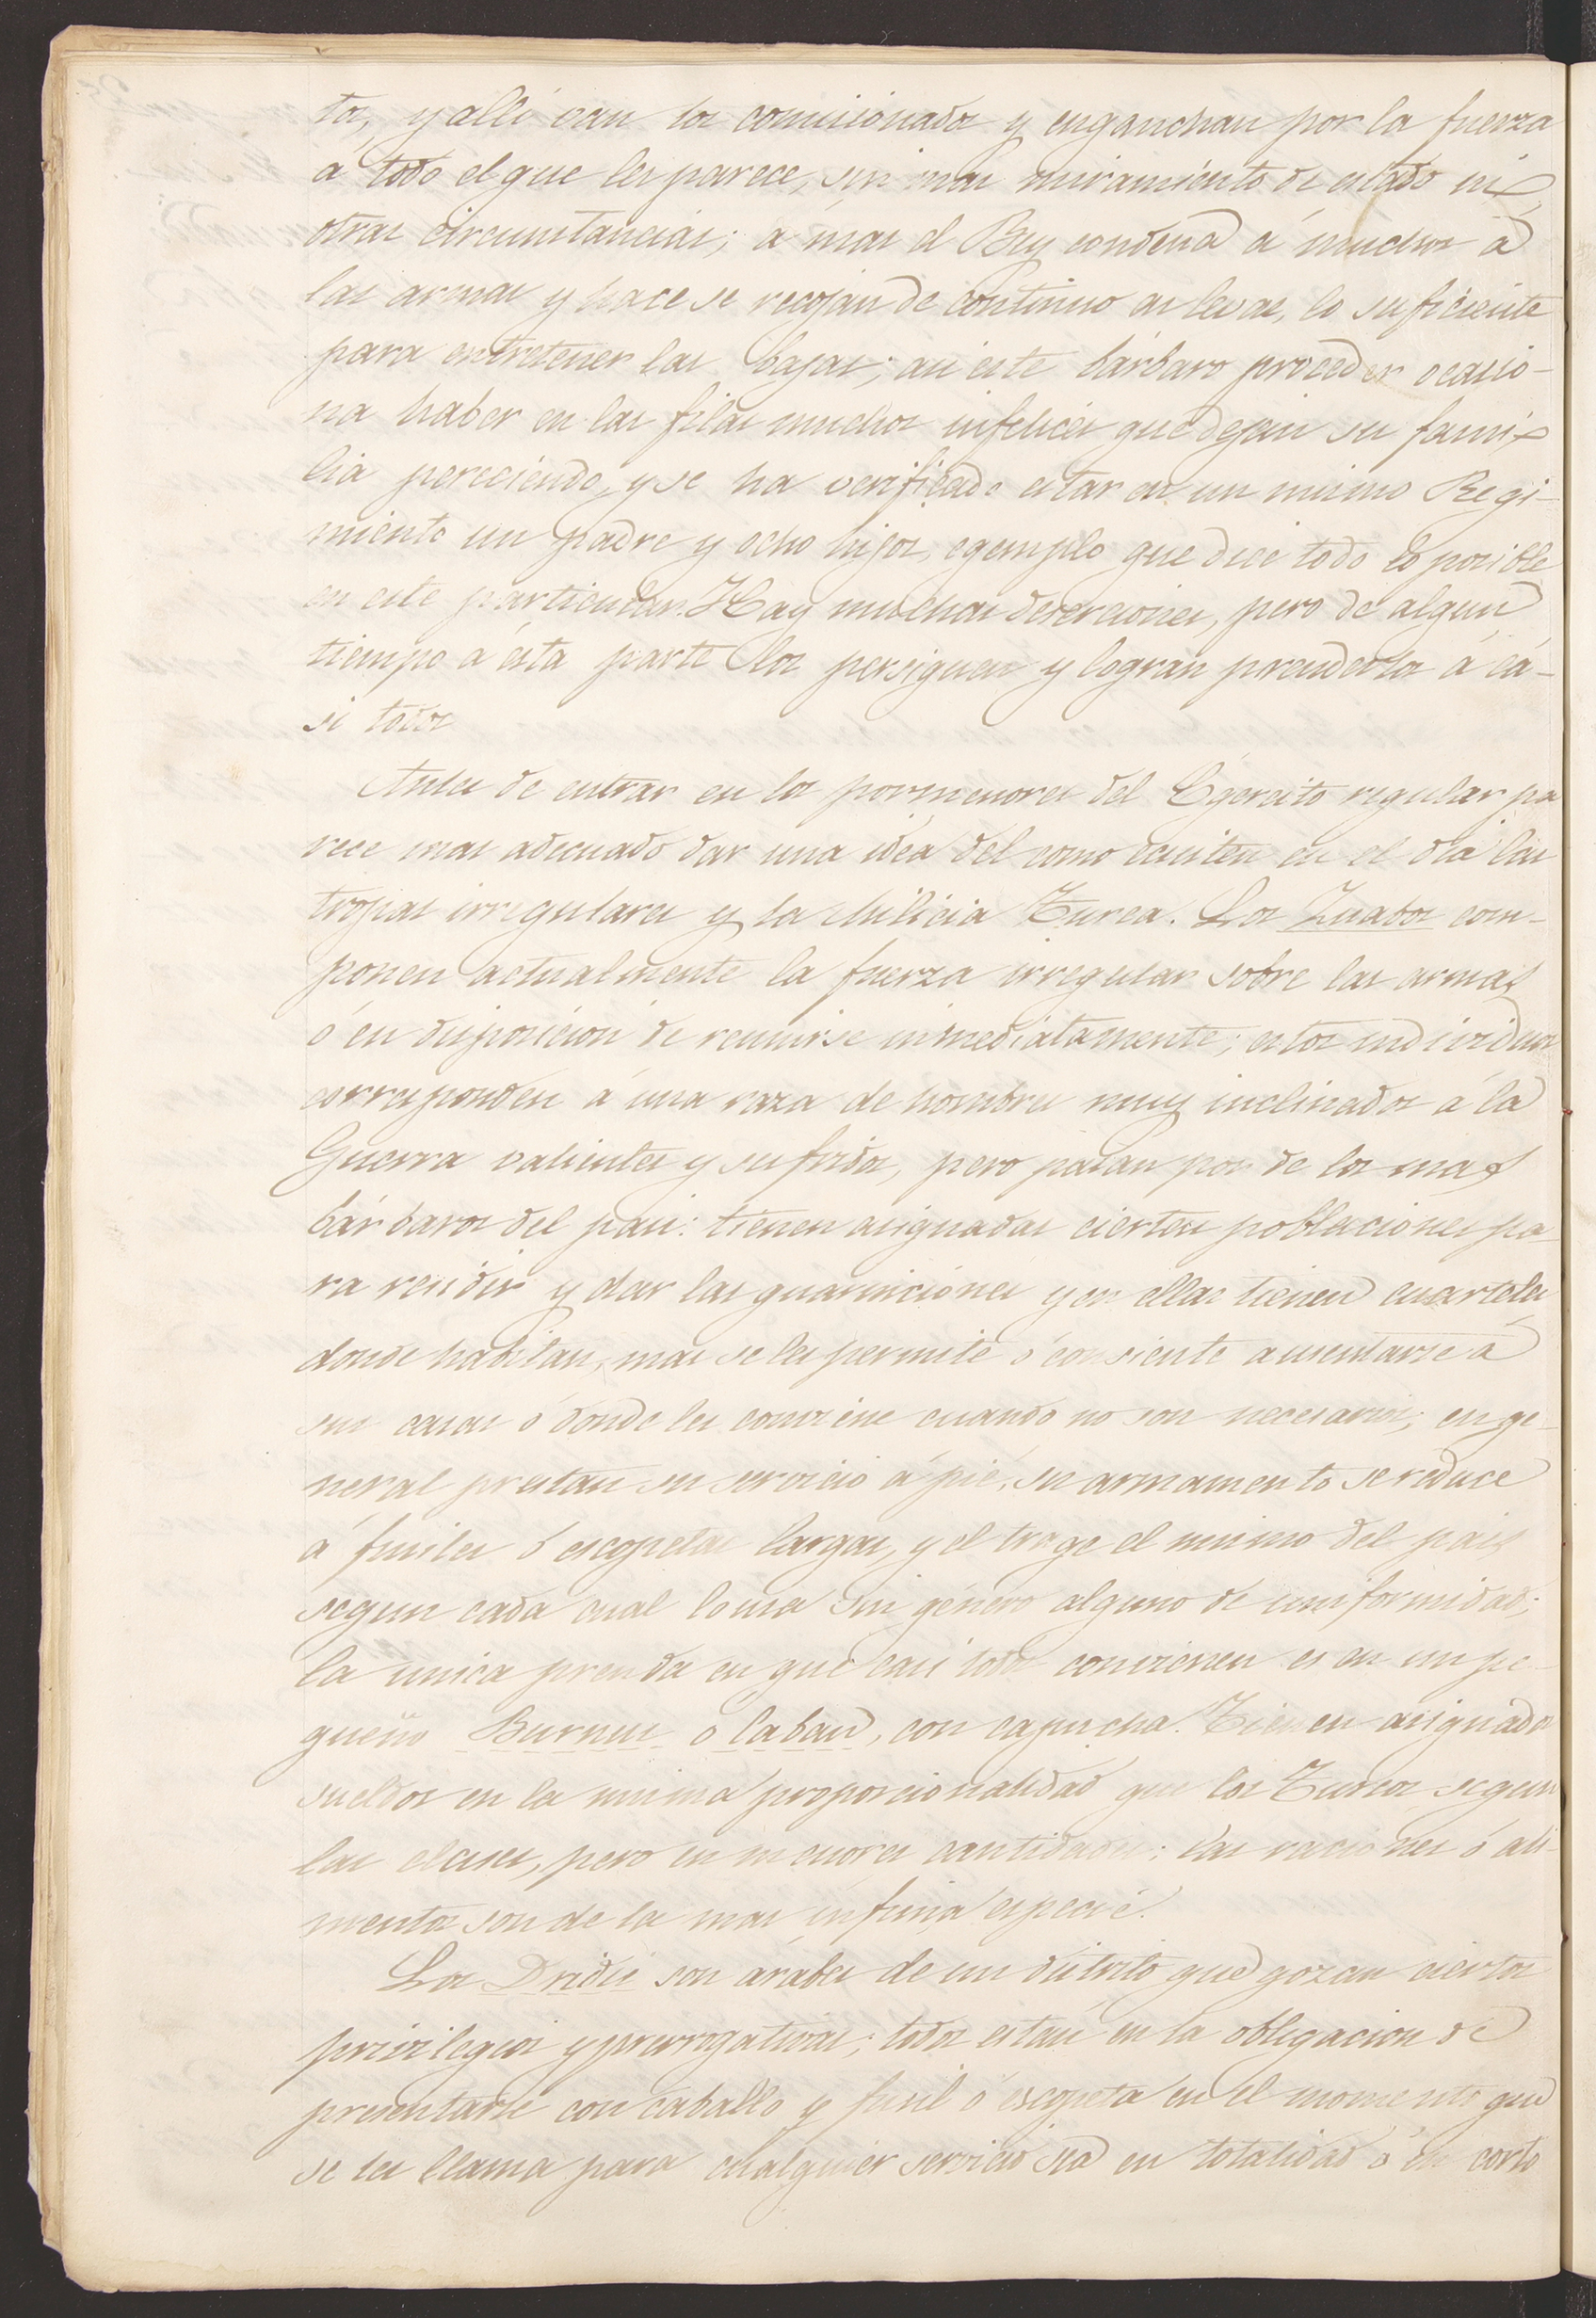 tos, y alli van los comisionados y enganchan por la fuerza
a todo el que les parece, sin mas miramiento de estado ni
otras circunstancias; á mas el Bey condena á muchos á
las armas y hace se recojan de continuo en levas, lo suficiente
para entretener las bajas; asi este bárbaro proceder ocasio-
na haber en las filas muchos infelices que dejan su fami-
lia pereciendo, y se ha verificado estar en un mismo Regi-
miento un padre y ocho hijos, egemplo que dice todo lo posible
en este particular. Hay muchas deserciones, pero de algun
tiempo á esta parte los persiguen y logran prenderlos á cá-
si todos
Antes de entrar en los pormenores del Egercito regular pa
rece mas adecuado dar una idea del como ecsisten en el dia las
tropas irregulares y la Milicia Turca. Los Zuabos com-
ponen actualmente la fuerza irregular sobre las armas
ó en disposicion de reunirse inmediatamente; estos individuos
corresponden á una raza de hombres muy inclinados á la
Guerra valientes y sufridos, pero pasan por de los mas
bárbaros del pais: tienen asignadas ciertas poblaciones pa-
ra residir y dar las guarniciónes y en ellas tienen cuarteles
donde habitan, mas se les permite ó consiente ausentarse á
sus casas ó donde les conviene cuando no son necesarios; en ge-
neral prestan su servicio á pié, su armamento se reduce
á fusiles ó escopetas largas, y el trage el mismo del pais
segun cada cual lo usa sin género alguno de uniformidad;
la unica prenda en que casi todos convienen es en un pe-
queño Burnus ó Caban, con capucha. Tienen asignados
sueldos en la misma proporcionalidad que los Turcos segun
las clases, pero en menores cantidades; las raciones ó ali-
mentos son de la mas infima especie.
Los Dridis son árabes de un distrito que gozan ciertos
privilegios y prerrogativas; todos estan en la obligacion de
presentarse con caballo y fusil ó escopeta en el momento que
se les llama para cualquier servicio sea en totalidad ó en corto